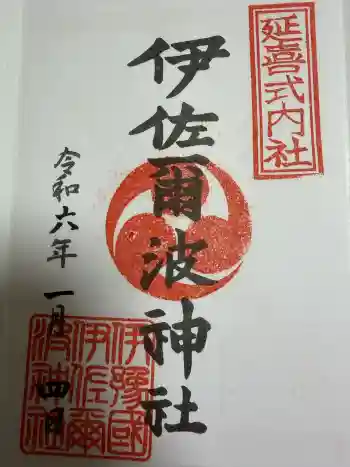 延喜式内社
伊佐爾波神社
令和六年 一月 四日
伊豫國
伊佐爾
波神社